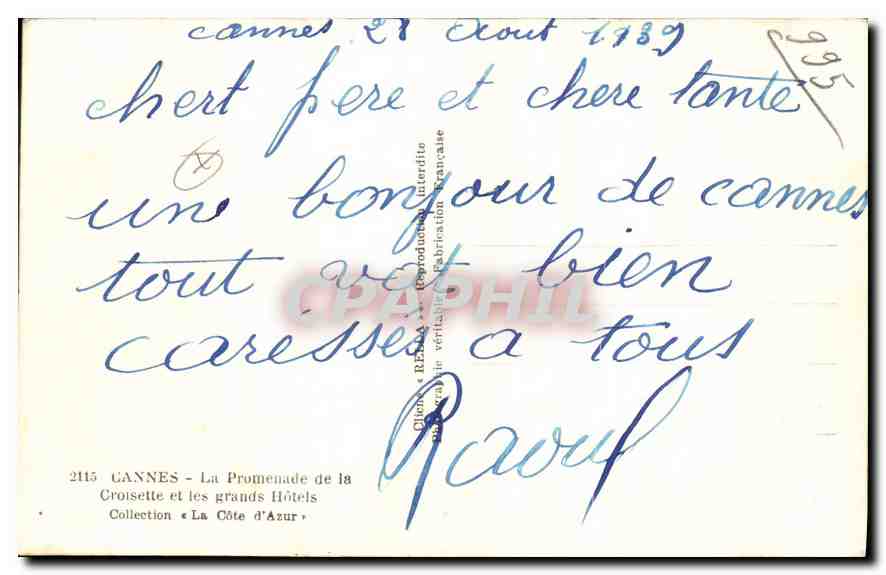 cannes 21 Aout 1939
995
chert frere et chere tante
une bonjour de cannes
tout vat bien
caresses a tous
Raoul
x
CPAPHIL
Cliché « RELLA » - Reproduction interdite
Photographie véritable - Fabrication Française
2115 CANNES - La Promenade de la
Croisette et les grands Hôtels
Collection « La Côte d'Azur »